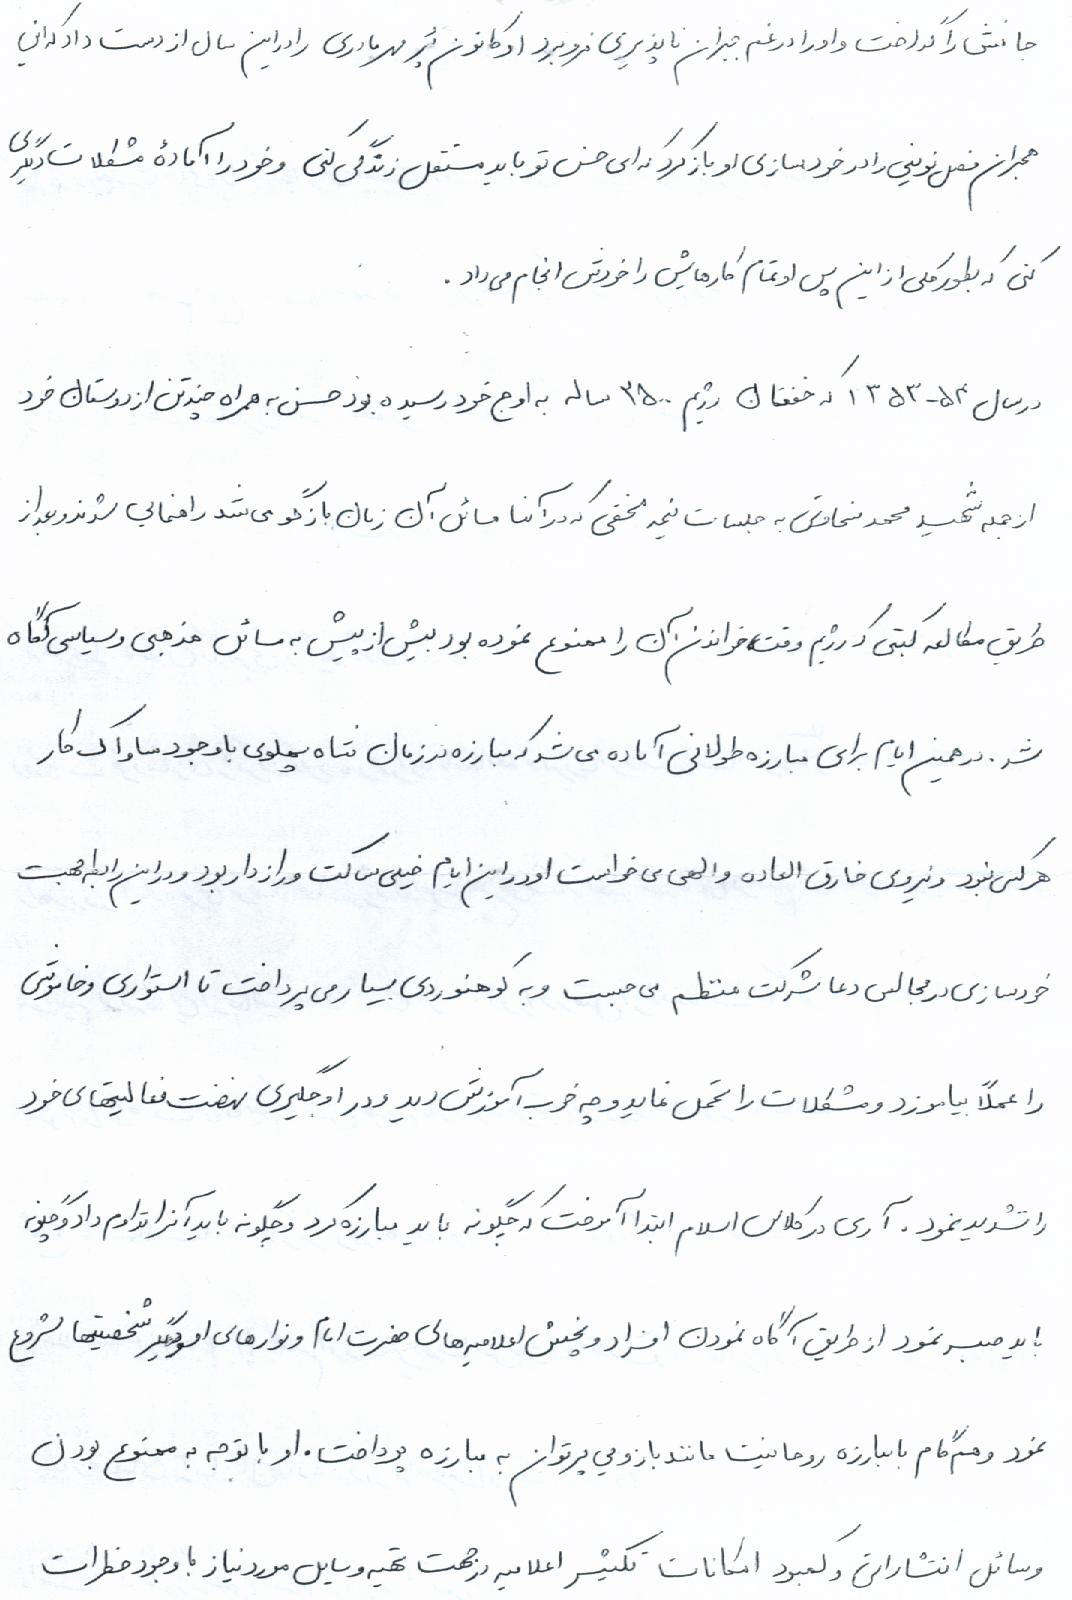 جانش را گداخت و او را در غم جبران ناپذیری فرو برد او کانون پُر مهر مادری را در این سال از دست داد که این
هجران فصل نوینی را در خودسازی او باز کرد که ای حسن تو باید مستقل زندگی کنی و خود را آمادهٔ مشکلات دیگری
کنی که بطور کلی از این پس او تمام کارهایش را خودش انجام می داد .
در سال ۵۴-۱۳۵۳ که خفقان رژیم ۲۵۰۰ ساله به اوج خود رسیده بود حسن به همراه چندتن از دوستان خود
از جمله شهید محمد به جلسات نیمه مخفی که در آنها مسائل آن زمان بازگو می شد راهنمایی شدند و بعد از
طریق مطالعه کتبی که رژیم وقت خواندن آن را ممنوع نموده بود بیش از پیش به مسائل مذهبی و سیاسی آگاه
شد . در همین ایام برای مبارزه طولانی آماده می شد که مبارزه در زمان شاه پهلوی با وجود ساواک کار
هر کس نبود و نیروی خارق العاده و الهی می خواست او در این ایام خیلی ساکت و رازدار بود و در این رابطه جهت
خودسازی در مجالس دعا شرکت منتظم می جست و به کوهنوردی بسیار می پرداخت تا استواری و خاموشی
را عملاً بیاموزد و مشکلات را تحمل نماید و چه خوب آموزش دید و در اوجگیری نهضت فعالیتهای خود
را تشدید نمود . آری در کلاس اسلام ابتدا آموخت که چگونه باید مبارزه کرد و چگونه باید آنرا تداوم داد و چگونه
باید صبر نمود از طریق آگاه نمودن افراد و پخش اعلامیه های حضرت امام و نوارهای او و دیگر شخصیتها شروع
نمود و همگام با مبارزه روحانیت مانند بازویی پرتوان به مبارزه پرداخت . او با توجه به ممنوع بودن
وسائل انتشاراتی و کمبود امکانات تکثیر اعلامیه در جهت تهیه وسایل مورد نیاز با وجود خطرات